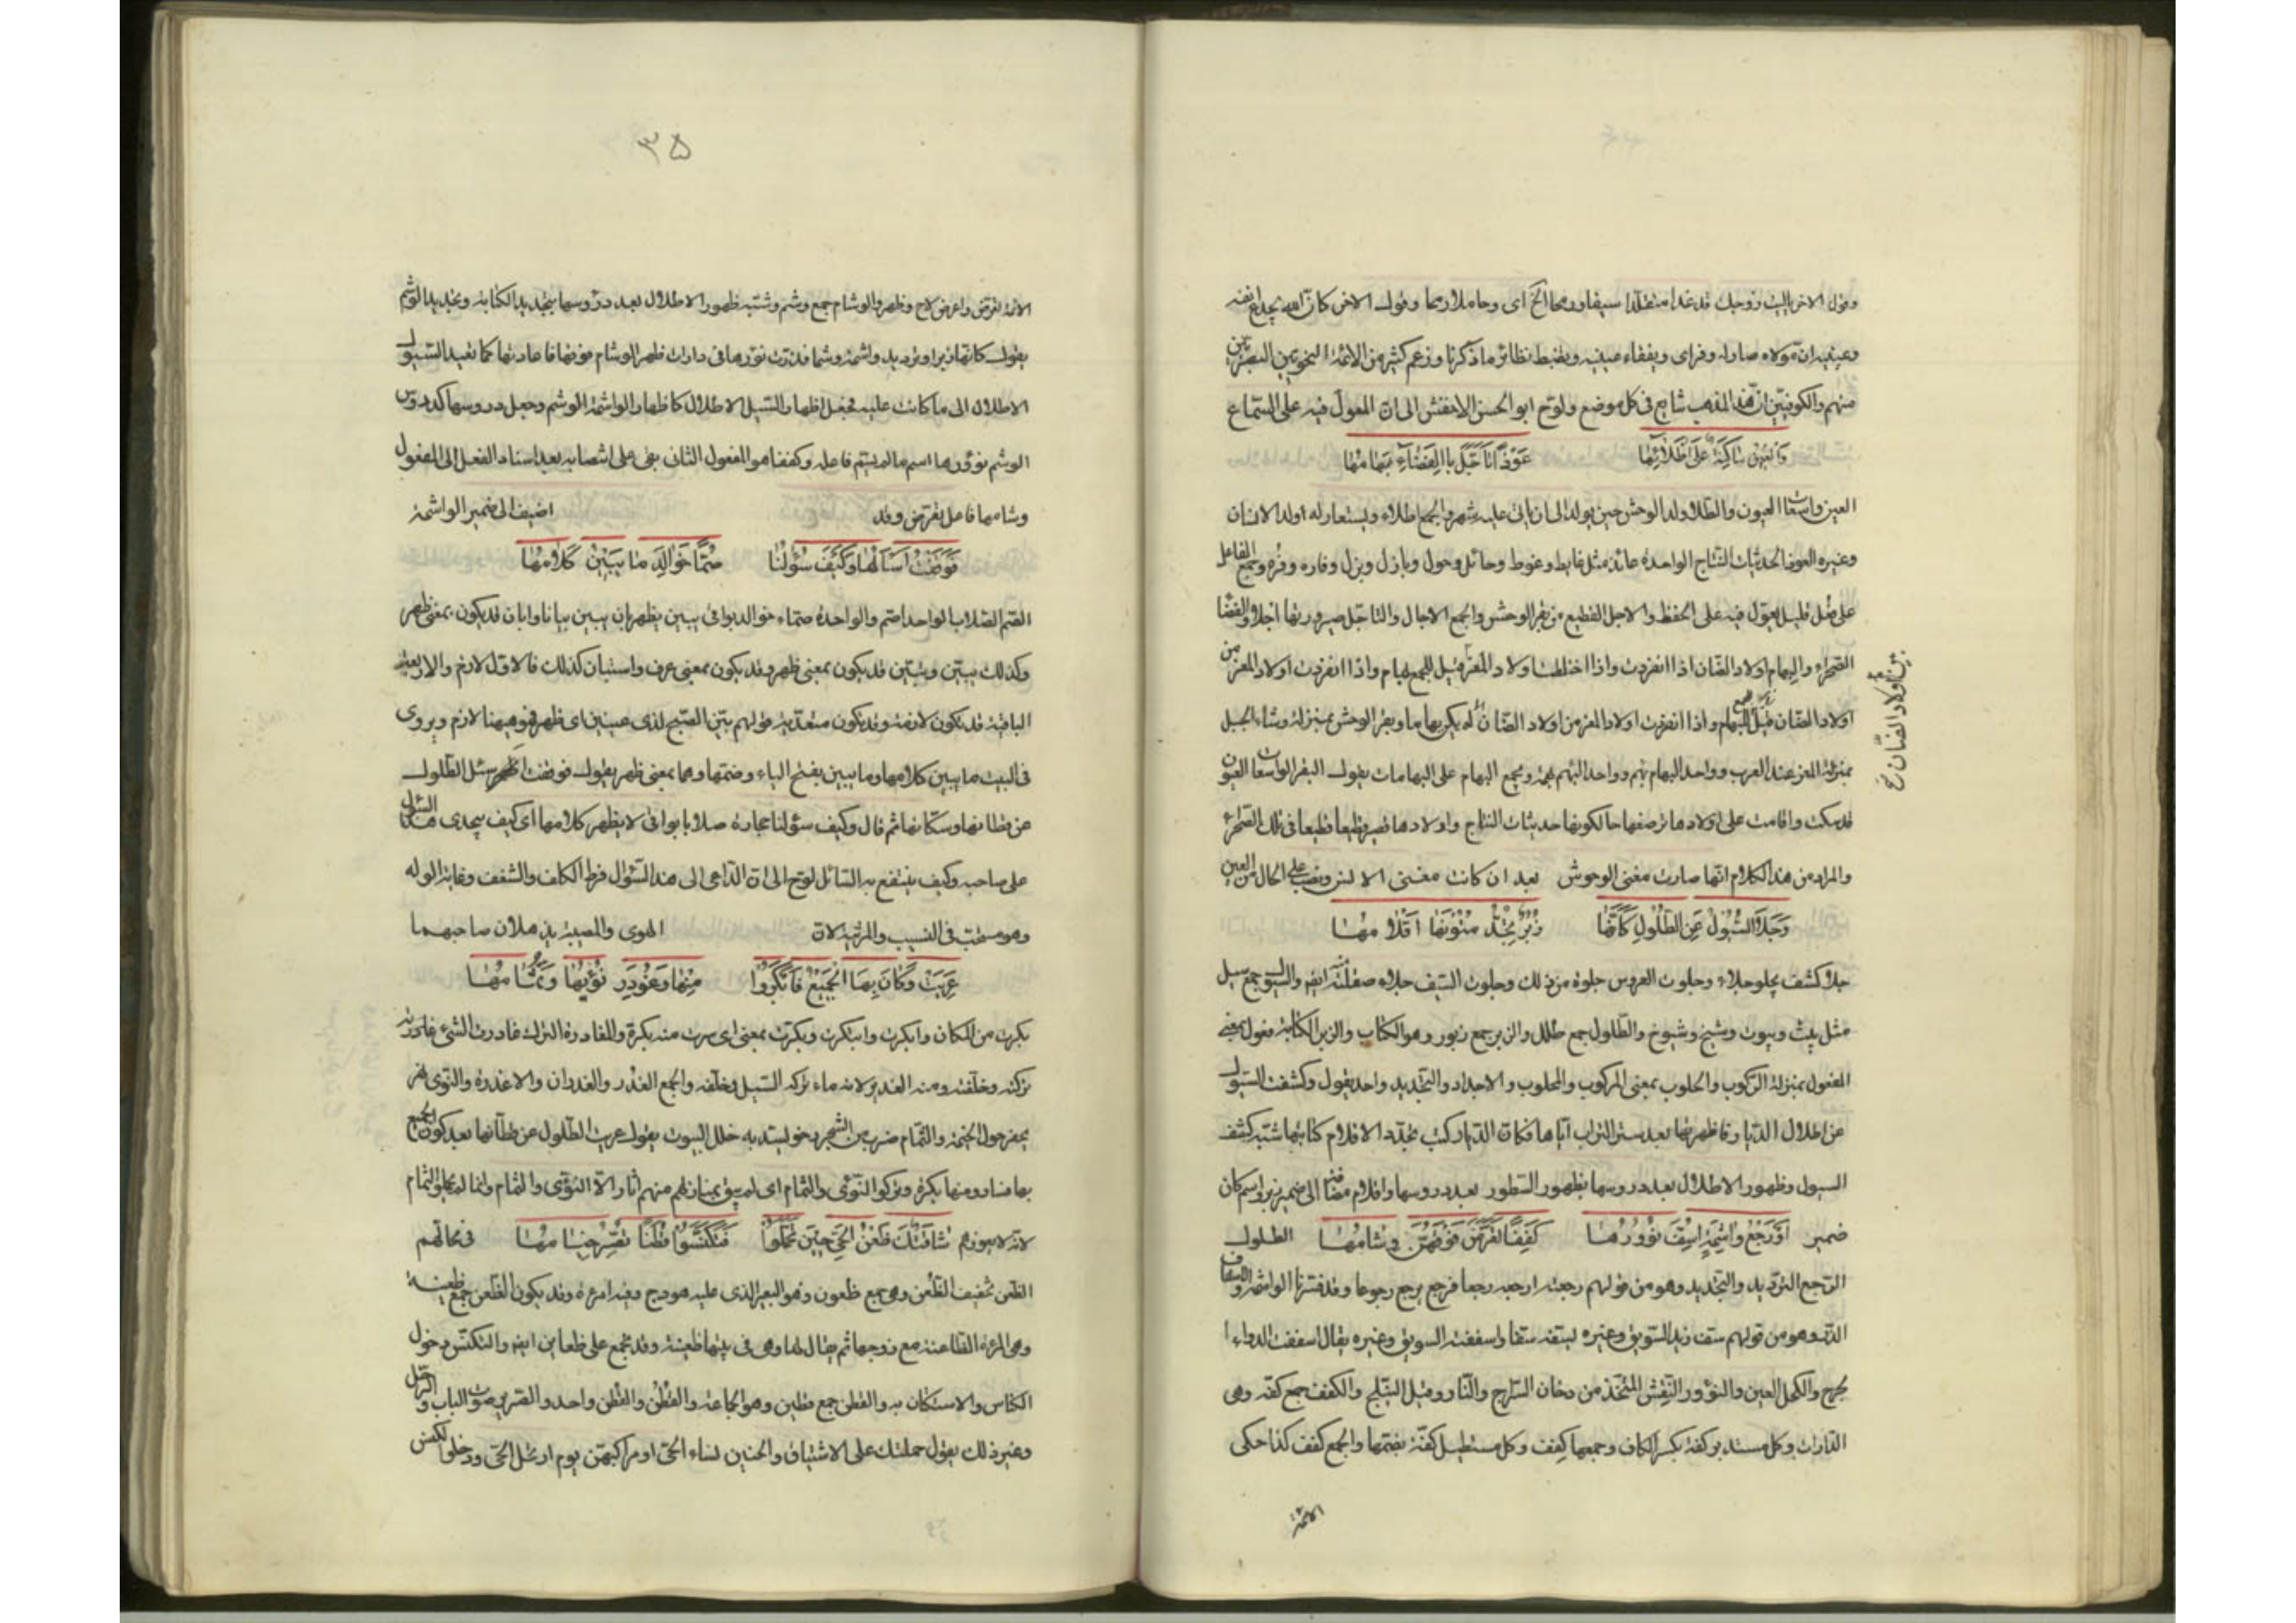 وقول الاخر يا ليت زوجك قد غدا متقلدا سيفا ورمحا الخ اى وحاملا رمحا وقول الاخر كان الله يجدع انفه
وعينيه ان مولاه صار له وفر اى ويفقاء عينيه ويضبط نظائر ما ذكرنا وزعم كثير من الائمة النحويين البصريين
منهم والكوفيين ان هذا المذهب شايع فى كل موضع ولوح ابو الحسن الاخفش الى ان المعول فيه على السماع
وَالعِينُ سَاكِنَةٌ عَلَى اَطْلَائِهَا عُوْذًا تَأَجَّلُ بِالفَضَاءِ بِهَامُهَا
العين واسعات العيون والطلا ولد الوحش حين يولد الى ان ياتى عليه شهر والجمع اطلاء ويستعار له اولد الانسان
وغيره العوذ الحديثات النتاج الواحدة عائذ مثل غايط وغوط وحائل وحول وبازل وبزل وفاره وفره وجمع الفاعل
على فعل قليل يعول فيه على الحفظ والاجل القطيع من بقر الوحش والجمع الاجال والتاجل صيرورتها اجلا والفضا
الصحراء والبهام اولاد الضان اذا انفردت واذا اختلطت اولاد المعز قيل للجميع بهام واذا انفردت اولاد المعز من
اولاد الضان قيل للجميع بهام واذا انفردت اولاد المعز من اولاد الضان لم يكن بهاما وبقر الوحش بمنزلة وشاء الجبل
بين اولاد الضان نخ
بمنزلة المعز عند العرب وواحد البهام بهم وواحد البهم بهمة ويجمع البهام على البهامات يقول البقر الواسعات العيون
قد سكنت واقامت على اولادها ترضعها حالكونها حديثات النتاج واولادها تصير قطيعا قطيعا فى تلك الصحراء
والمراد من هذا الكلام انها صارت مغنى الوحوش بعد ان كانت مغنى الانس ونصب على الحال من العين
وَجَلَا السُّيُوْلُ عَنِ الطُّلُوْلِ كَاَنَّهَا زُبُرٌ تُجِدُّ مُتُوْنَهَا اَقْلَامُهَا
جلا كشف يجلو جلاء وجلوت العروس جلوة من ذلك وجلوت السيف جلاء صقلته منه ايضا والسيول جمع سيل
مثل بيت وبيوت وشيخ وشيوخ والطلول جمع طلل والزبر جمع زبور وهو الكتاب والزبر الكتابة فعول بمعنى
المفعول بمنزلة الركوب والحلوب بمعنى المركوب والمحلوب والاجداد والتجديد واحد يقول وكشفت السيول
عن اطلال الديار فاظهرتها بعد ستر التراب اياها فكان الديار كتب تجدد الاقلام كتابتها شبه كشف
السيول وظهور الاطلال بعد دروسها بظهور السطور بعد دروسها واقلام مضافة الى ضمير زبر واسم كان
ضمير اَوْ رَجْعُ وَاشِمَةٍ اُسِفَّ نَؤُوْرُهَا كِفَفًا تَعَرَّضَ فَوْقَهُنَّ وِشَامُهَا الطلول
الرجع الترديد والتجديد وهو من قولهم رجعته ارجعه رجعا فرجع يرجع رجوعا وقد فسرنا الواشمة والاسفاف
الذر وهو من قولهم سف زيد السويق وغيره يسفه سفا واسففته السويق وغيره يقال اسففت الدواء
الجرح والكحل العين والنؤور النقش المتخذ من دخان السراج والنار وقيل النيلج والكفف جمع كفة وهى
الدارات وكل مستدير كفة بكسر الكاف وجمعها كفف وكل مستطيل كفة بضمها والجمع كفف كذا حكى
الائمة
٣٥
الائمة تعرض واعرض لاح وظهر والوشام جمع وشم وشبه ظهور الاطلال بعد دروسها بتجديد الكتابة وتجديد الوشم
يقول كانها زبر او ترديد واشمة وشما قد ذرت نؤورها فى دارات ظهر الوشام فوقها فاعادتها كما تعيد السيول
الاطلال الى ما كانت عليه فجعل اظهار السيل الاطلال كاظهار الواشمة الوشم وجعل دروسها كدروس
الوشم نؤورها اسم ما لم يسم فاعله وكففا هو المفعول الثانى بقى على انتصابه بعد اسناد الفعل الى المفعول
وشامها فاعل تعرض وقد اضيف الى ضمير الواشمة
فَوَقَفْتُ اَسْاَلُهَا وَكَيْفَ سُؤَالُنَا صُمًّا خَوَالِدَ مَا يَبِيْنُ كَلَامُهَا
الصم الصلاب الواحد اصم والواحدة صماء خوالد بواقى يبين يظهر بان يبين بيانا وابان قد يكون بمعنى ظهر
وكذلك بين وتبين قد يكون بمعنى ظهر وقد يكون بمعنى عرف واستبان كذلك فالاول لازم والاربعة
الباقية قد يكون لازمة وقد يكون متعدية قولهم بين الصبح لذى عينين اى ظهر فهو هيهنا لازم ويروى
فى البيت ما يبين كلامها وما يبين بفتح الياء وضمتها وهما بمعنى ظهر يقول فوقفت اسئل الطلول
عن قطانها وسكانها ثم قال وكيف سؤلنا حجارة صلابا بواقى لا يظهر كلامها اى كيف يجدى هذا السؤال
على صاحبه وكيف ينتفع به السائل لوح الى ان الداعى الى هذا السؤال فرط الكلف والشغف وغاية الوله
وهو مستحب فى النسيب والمرثية لان الهوى والمصيبة يذهلان صاحبهما
عَرِيَتْ وَكَانَ بِهَا الْجَمِيْعُ فَاَبْكَرُوْا مِنْهَا وَغُوْدِرَ نُؤْيُهَا وَثُمَامُهَا
بكرت من المكان وابكرت وابتكرت وبكرت بمعنى اى سرت منه بكرة والمغادرة الترك غادرت الشئ
تركته وخلفته ومنه الغدير لانه ماء تركه السيل وخلفه والجمع الغدر والغدران والاغدرة والنوى نهر
يحفر حول الخيمة والثمام ضرب من الشجر رخو يسد به خلل البيوت يقول عريت الطلول عن قطانها بعد كون الجميع
بها فساروا منها بكرة وتركوا النوى والثمام اى لم يبق بمنازلهم منهم اثار الا النؤى والثمام وانما لم يحملوا الثمام
لانه لا يعوزهم شَاقَتْكَ ظُعْنُ الْحَىِّ حِيْنَ تَحَمَّلُوْا فَتَكَنَّسُوْا قُطُنًا تَصِرُّ خِيَامُهَا فى محالهم
الظعن تخفيف الظعن وهى جمع ظعون وهو البعير الذى عليه هودج وفيه امرءة وقد يكون الظعن جمع ظعينة
وهى المرءة الظاعنة مع زوجها ثم يقال لها وهى فى بيتها ظعينة وقد تجمع على ظعاين ايضا والتكنس دخول
الكناس والاستكنان به والقطن جمع قطين وهو الجماعة والقطن والقطن واحد والصرير صوت الباب والرحل
وغير ذلك يقول حملتك على الاشتياق والحنين نساء الحى او مراكبهن يوم ارتحل الحى ودخلوا